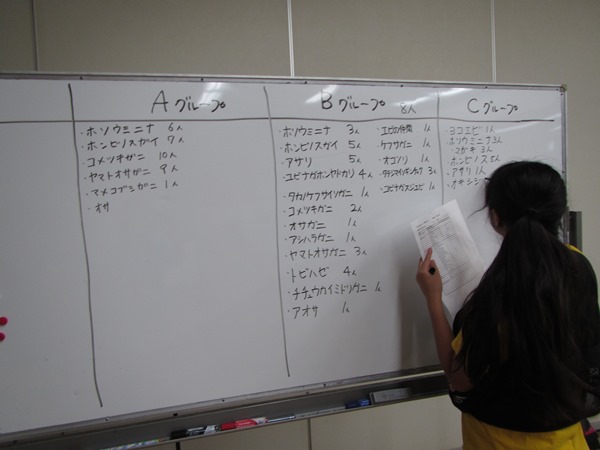 Aグループ
・ホソウミニナ 6人
・ホンビノスガイ 7人
・コメツキガニ 10人
・ヤマトオサガニ 9人
・マメコブシガニ 1人
・オサ
Bグループ 8人
・ホソウミニナ 3人
・ホンビノスガイ 5人
・アサリ 5人
・ユビナガホンヤドカリ 4人
・タカノケフサイソガニ 1人
・コメツキガニ 2人
・オサガニ 1人
・アシハラガニ 1人
・ヤマトオサガニ 3人
・トビハゼ 4人
・チチュウカイミドリガニ 1人
・アオサ 1人
・エビの仲間 1人
・ケフサガニ 1人
・オゴノリ 1人
・タテジマイソギンチャク 3人
・ユビナガスジエビ 1人
Cグループ
・ヨコエビ 1人
・ホソウミニナ 3人
・マガキ 3人
・ホンビノス 5人
・アサリ 1人